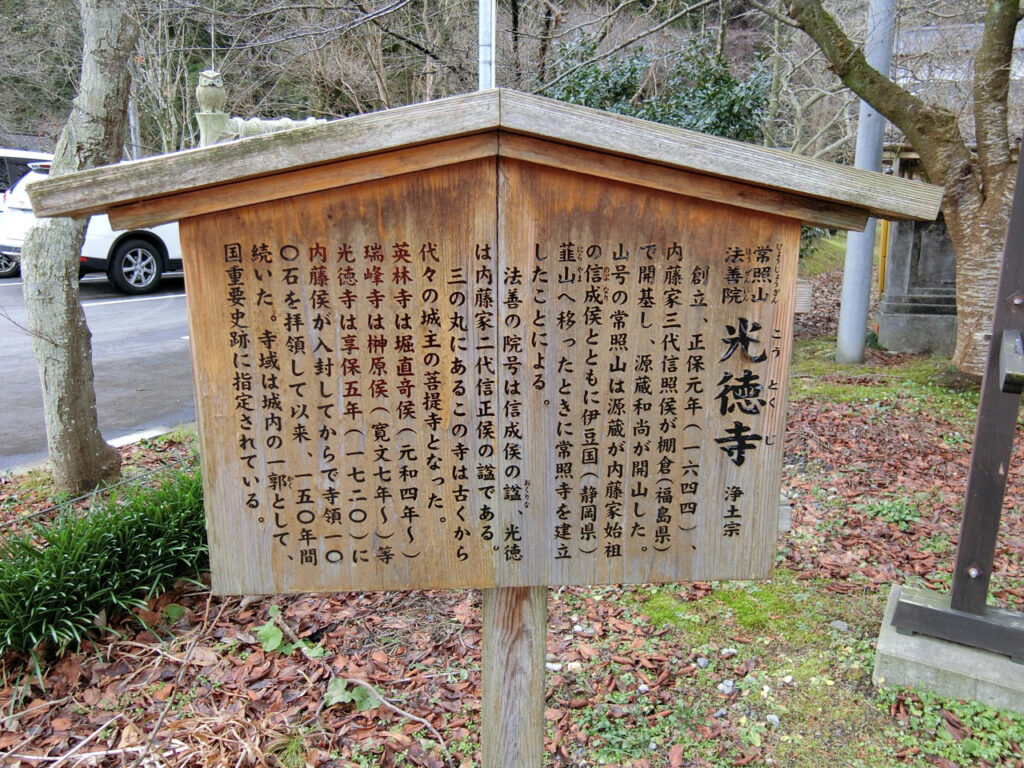 常照山
じょうしょうざん
法善院
ほうぜんいん
光徳寺
こうとくじ
浄土宗
創立、正保元年(一六四四)、
内藤家三代信照侯が棚倉(福島県)
で開基し、源蔵和尚が開山した。
山号の常照山は源蔵が内藤家始祖
の信成侯とともに伊豆国(静岡県)
のぶなり
韮山へ移ったときに常照寺を建立
にらやま
したことによる。
法善の院号は信成侯の諡、光徳
おくりな
は内藤家二代信正侯の諡である。
三の丸にあるこの寺は古くから
代々の城主の菩提寺となった。
英林寺は堀直竒侯(元和四年〜)
瑞峰寺は榊原侯(寛文七年〜)等
光徳寺は享保五年(一七二〇)に
内藤侯が入封してからで寺領一〇
〇石を拝領して以来、一五〇年間
続いた。寺域は城内の一郭として、
かく
国重要史跡に指定されている。